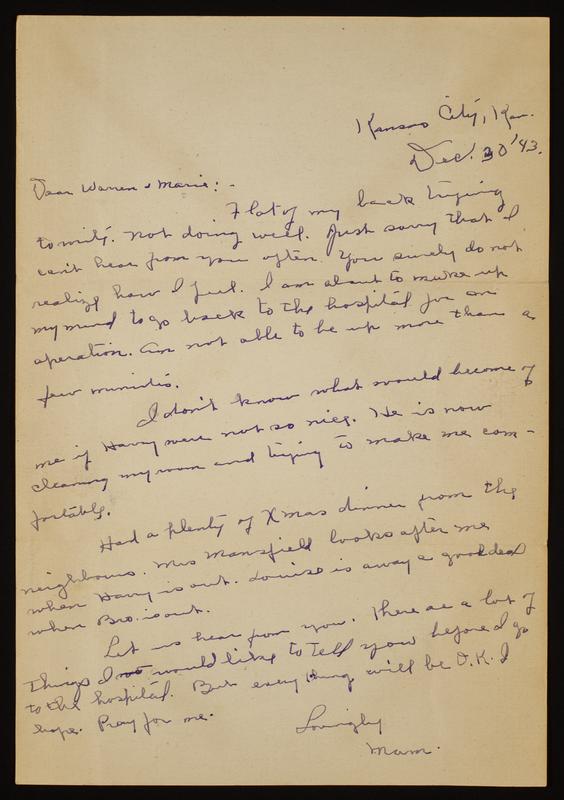 Kansas City, Kan.
Dec. 30 '43.
Dear Warren & Marie: -
Flat of my back trying
to write. Not doing well. Just sorry that I
can't hear from you often. You surely do not
realize how I feel. I am about to make up
my mind to go back to the hospital for an
operation. Am not able to be up more than a
few minutes.
I don't know what would become of
me if Harry were not so nice. He is now
cleaning my room and trying to make me com-
fortable.
Had a plenty of Xmas dinner from the
neighbours. Mrs Mansfield looks after me
when Harry is out. Louise is away a good deal
when Bro. is out.
Let us hear from you. There are a lot of
things I would like to tell you before I go
to the hospital. But every thing will be O.K. I
hope. Pray for me.
Lovingly
Mam.